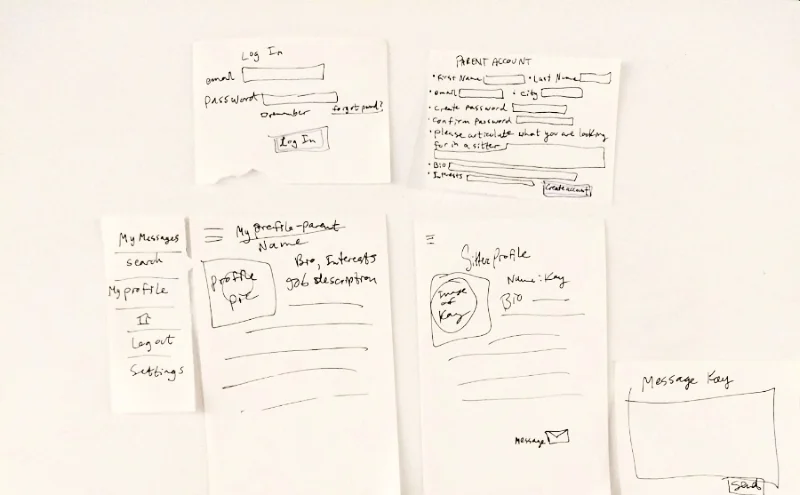 Log In
email
Password
remember forgot pwd?
Log In
PARENT ACCOUNT
• First Name • Last Name
• email • City
• Create Password
• Confirm Password
• please articulate what you are looking
for in a sitter
• Bio
• Interests
Create account
My Messages
Search
My profile
Logout
Settings
My profile-parent
Name
Profile
pic
Bio, Interests
job description
Sitter Profile
Image
of
Kay
Name: Kay
Bio
Message
Message Kay
Send